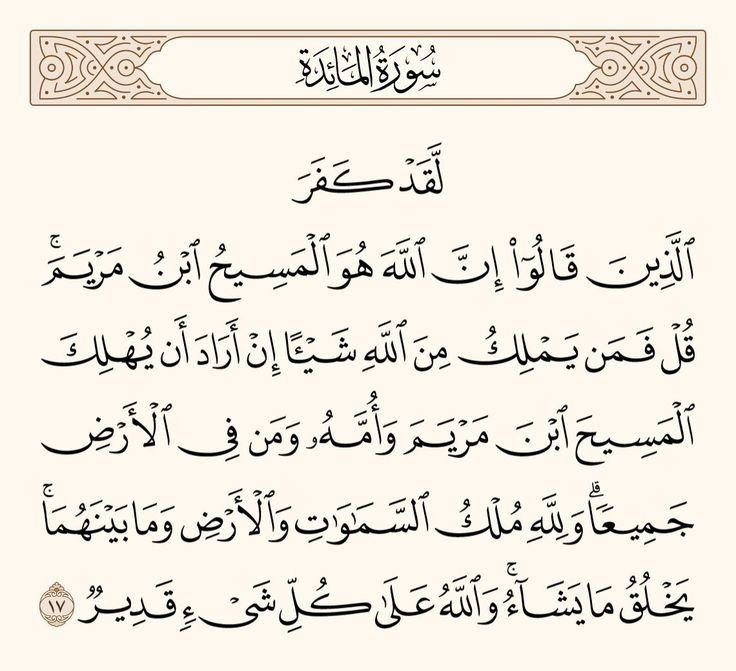 سُورَةُ المَائِدَةِ
لَّقَدۡ كَفَرَ
ٱلَّذِينَ قَالُوٓاْ إِنَّ ٱللَّهَ هُوَ ٱلۡمَسِيحُ ٱبۡنُ مَرۡيَمَۚ
قُلۡ فَمَن يَمۡلِكُ مِنَ ٱللَّهِ شَيۡـًٔا إِنۡ أَرَادَ أَن يُهۡلِكَ
ٱلۡمَسِيحَ ٱبۡنَ مَرۡيَمَ وَأُمَّهُۥ وَمَن فِي ٱلۡأَرۡضِ
جَمِيعٗاۗ وَلِلَّهِ مُلۡكُ ٱلسَّمَٰوَٰتِ وَٱلۡأَرۡضِ وَمَا بَيۡنَهُمَاۚ
يَخۡلُقُ مَا يَشَآءُۚ وَٱللَّهُ عَلَىٰ كُلِّ شَيۡءٖ قَدِيرٞ ١٧